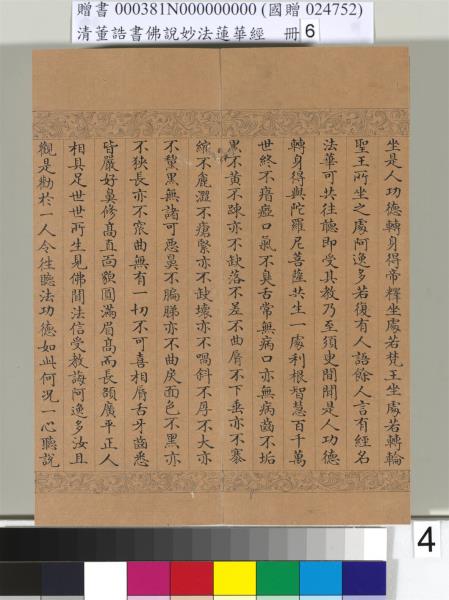 贈書 000381N000000000 (國贈 024752)
清董誥書佛說妙法蓮華經 冊 6
坐是人功德轉身得帝釋坐處若梵王坐處若轉輪
聖王所坐之處阿逸多若復有人語餘人言有經名
法華可共往聽即受其教乃至須臾間聞是人功德
轉身得與陀羅尼菩薩共生一處利根智慧百千萬
世終不瘖瘂口氣不臭舌常無病口亦無病齒不垢
黑不黃不踈亦不缺落不差不曲脣不下垂亦不褰
縮不麁澀不瘡緊亦不缺壞亦不喎斜不厚不大亦
不黧黑無諸可惡鼻不匾㔸亦不曲戾面色不黑亦
不狹長亦不窊曲無有一切不可喜相脣舌牙齒悉
皆嚴好鼻修高直面貌圓滿眉高而長頟廣平正人
相具足世世所生見佛聞法信受教誨阿逸多汝且
觀是勸於一人令往聽法功德如此何況一心聽說
4